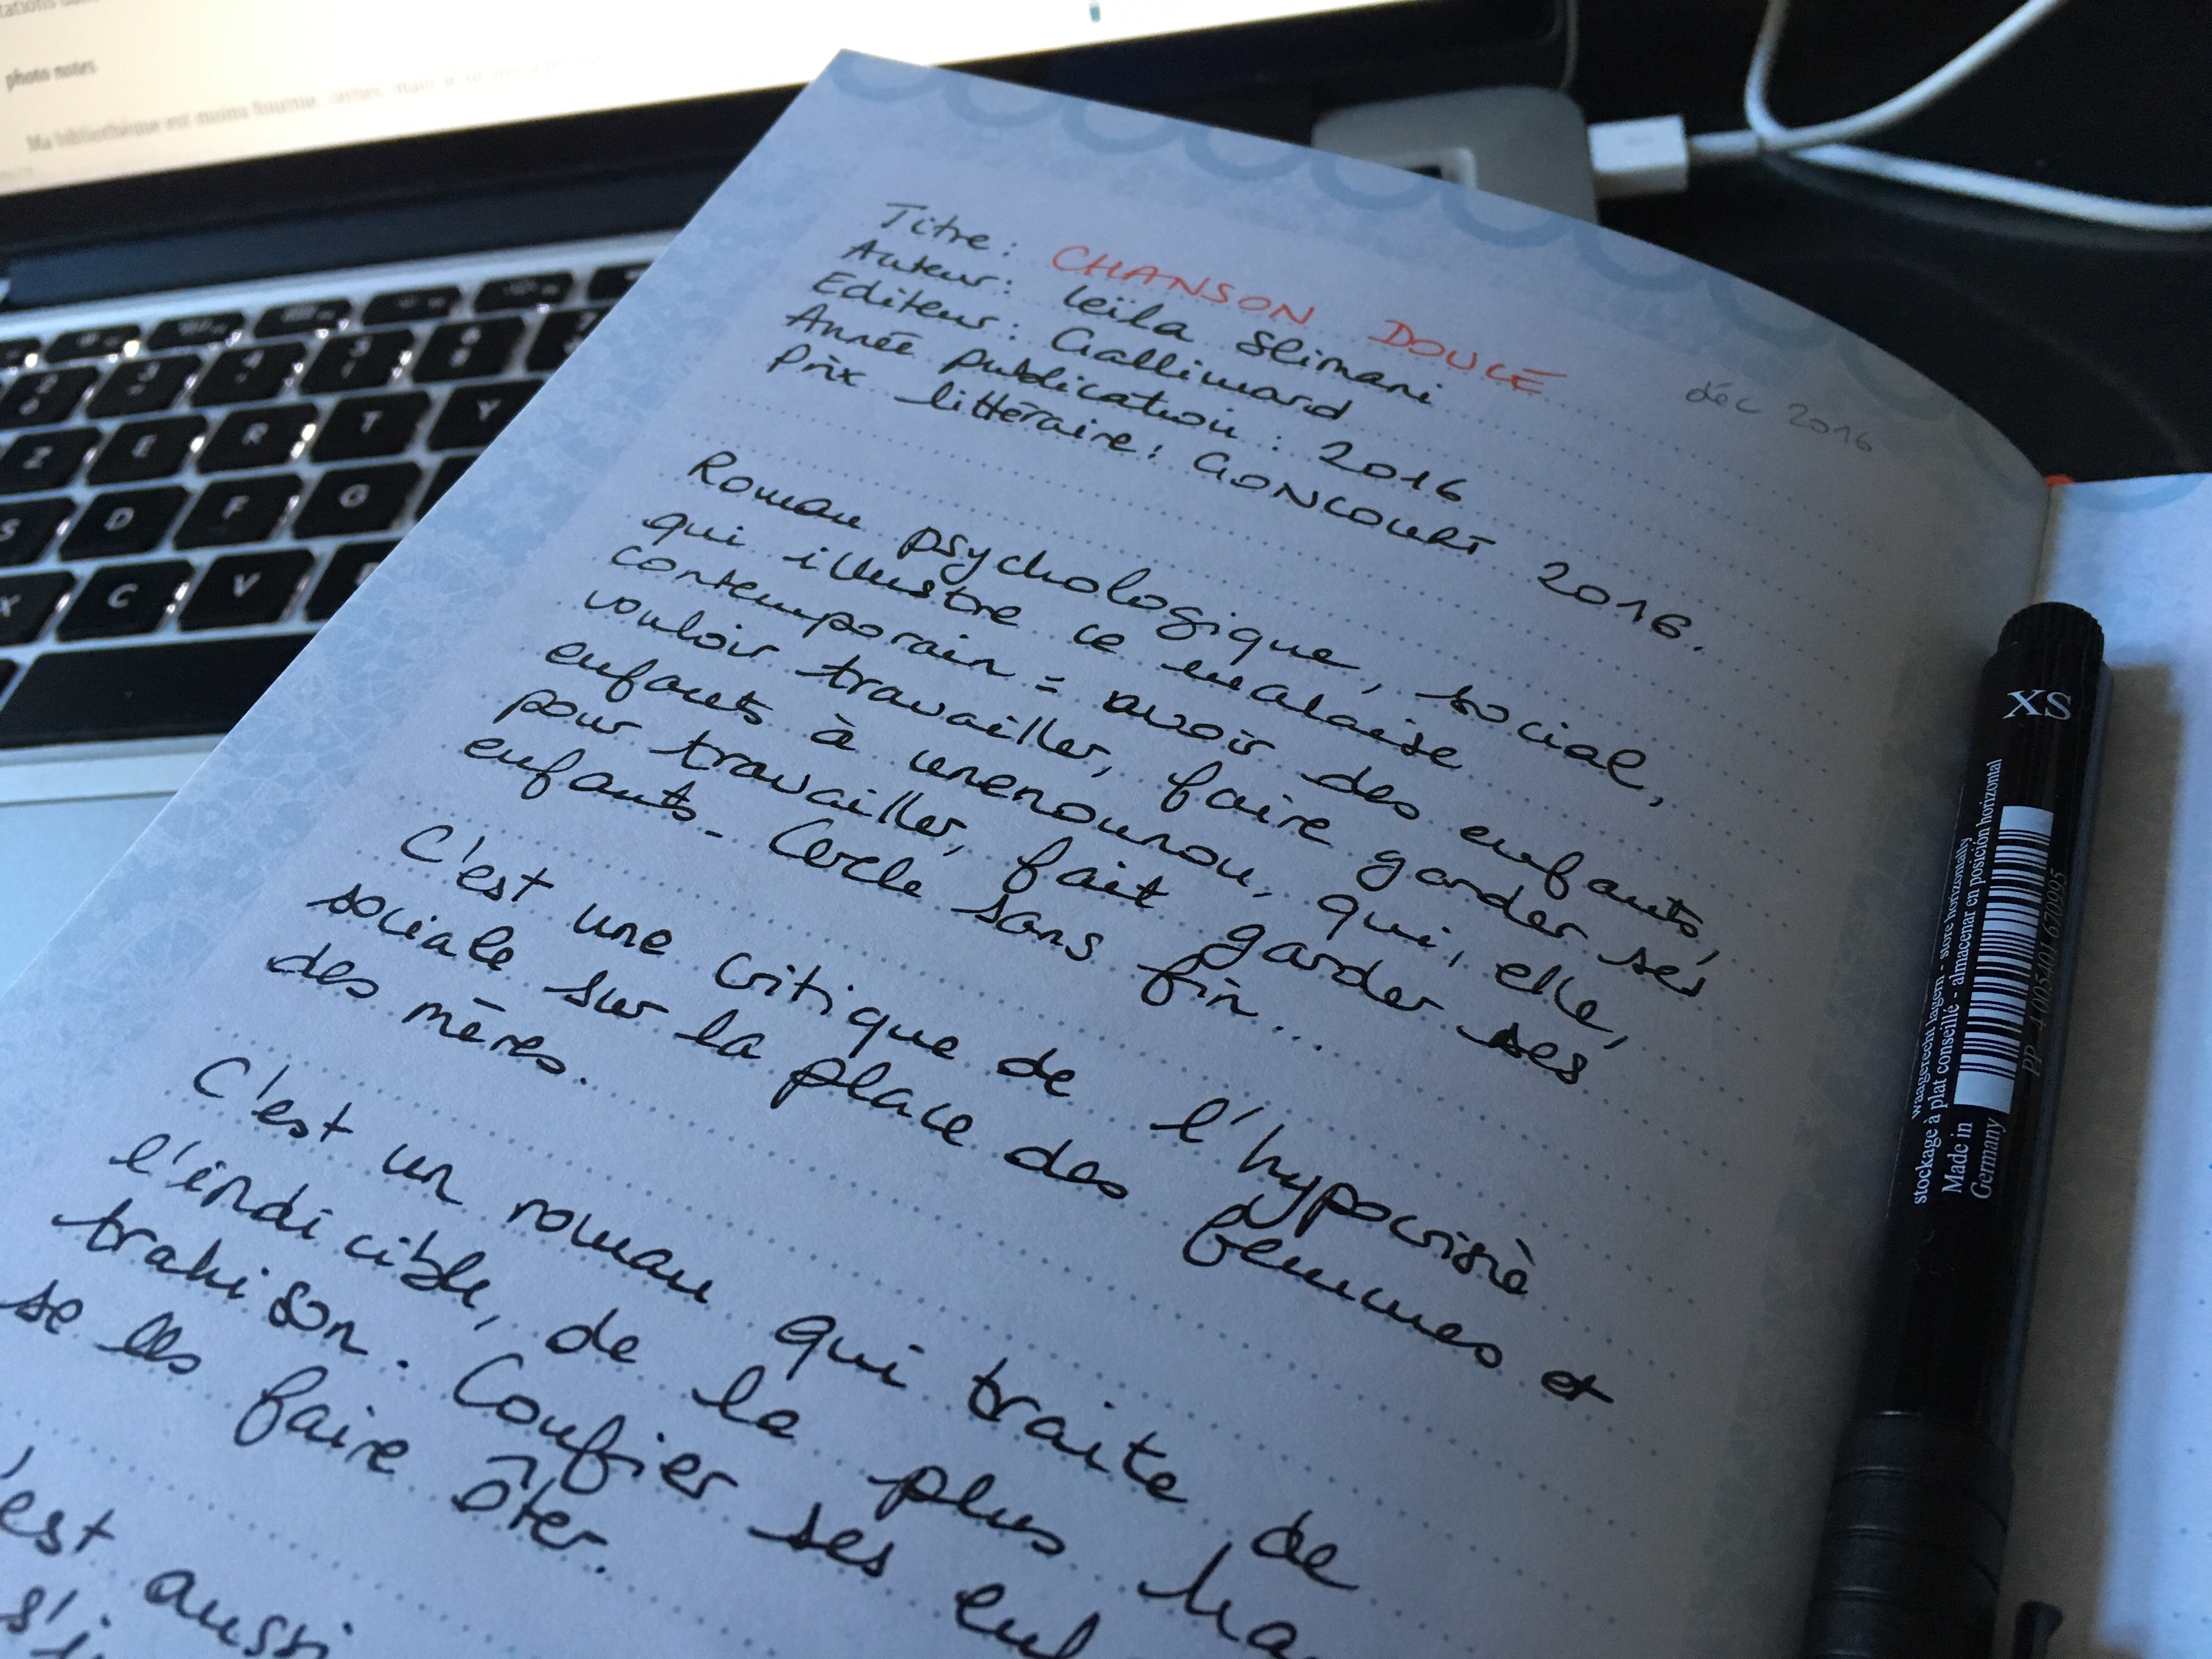 photo notes
Ma bibliothèque est moins fournie, certes, mais je ne
Titre: CHANSON DOUCE
Auteur: leïla Slimani
Editeur: Gallimard
Année publication: 2016
Prix littéraire: GONCOURT 2016.
déc 2016
Roman psychologique, social,
qui illustre ce malaise
contemporain = avoir des enfants,
vouloir travailler, faire garder ses
enfants à une nounou, qui, elle,
pour travailler, fait garder ses
enfants. Cercle sans fin...
C'est une critique de l'hypocrisie
sociale sur la place des femmes et
des mères.
C'est un roman qui traite de
l'indicible, de la plus
trahison. Confier ses
se les faire ôter.
est aussi
XS
waagerecht lagern - store horizontally
stockage à plat conseillé - almacenar en posición horizontal
Made in
Germany
PP 4 085401 670995
2
3
4
5
6
7
Z
E
R
T
Y
S
D
F
G
X
C
V